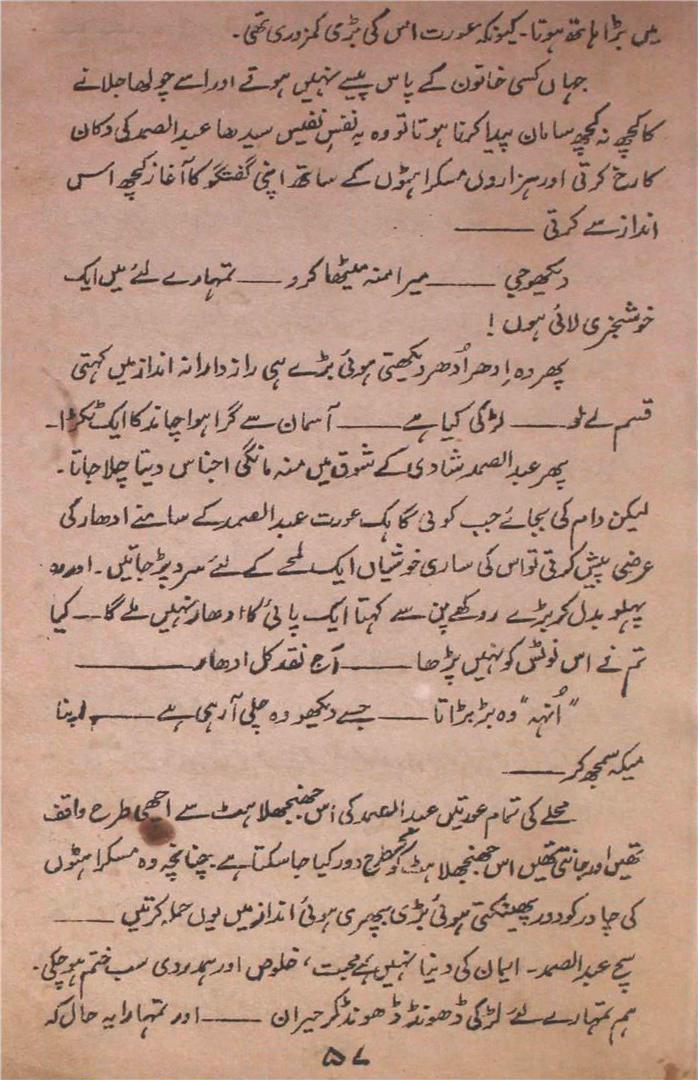 میں بڑا ہاتھ ہوتا۔ کیونکہ عورت اس کی بڑی کمزوری تھی۔
جہاں کسی خاتون کے پاس پیسے نہیں ہوتے اور اسے چولھا جلانے
کا کچھ نہ کچھ سامان پیدا کرنا ہوتا تو وہ بہ نفسِ نفیس سیدھا عبدالصمد کی دکان
کا رخ کرتی اور ہزاروں مسکراہٹوں کے ساتھ اپنی گفتگو کا آغاز کچھ اس
انداز سے کرتی ——
دیکھو جی —— میرا منہ میٹھا کرو —— تمہارے لئے میں ایک
خوشخبری لائی ہوں !
پھر وہ اِدھر اُدھر دیکھتی ہوئی بڑے ہی رازدارانہ انداز میں کہتی
قسم لے لو —— لڑکی کیا ہے —— آسمان سے گرا ہوا چاند کا ایک ٹکڑا۔
پھر عبدالصمد شادی کے شوق میں منہ مانگی اجناس دیتا چلا جاتا۔
لیکن دام کی بجائے جب کوئی گاہک عورت عبدالصمد کے سامنے ادھار کی
عرضی پیش کرتی تو اس کی ساری خوشیاں ایک لمحے کے لئے سرد پڑ جاتیں۔ اور وہ
پہلو بدل کر بڑے روکھے پن سے کہتا ایک پائی کا ادھار نہیں ملے گا — کیا
تم نے اس نوٹس کو نہیں پڑھا —— آج نقد کل ادھار ————
”اُنہہ“ وہ بڑبڑاتا —— جسے دیکھو وہ چلی آ رہی ہے —— اپنا
میکہ سمجھ کر ——
محلے کی تمام عورتیں عبدالصمد کی اس جھنجھلاہٹ سے اچھی طرح واقف
تھیں اور جانتی تھیں اس جھنجھلاہٹ کو کس طرح دور کیا جا سکتا ہے۔ چنانچہ وہ مسکراہٹوں
کی چادر کو دور پھینکتی ہوئی بڑی بپھری ہوئی انداز میں یوں حملہ کرتیں ——
سچ عبدالصمد۔ ایمان کی دنیا نہیں ہے محبت، خلوص اور ہمدردی سب ختم ہو چکی۔
ہم تمہارے لئے لڑکی ڈھونڈ ڈھونڈ کر حیران —— اور تمہارا یہ حال کہ
۵۷